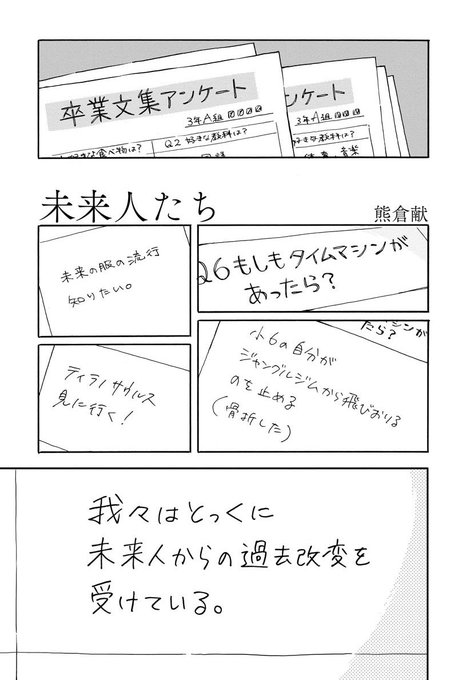 卒業文集アンケート
3年A組
Q2 好きな教科は?
好きな食べ物は?
ンケート
3年A組
好きな教科は?
音楽
未来人たち
熊倉献
Q6もしもタイムマシンが
あったら?
未来の服の流行
知りたい。
たら?
小6の自分が
ジャングルジムから飛びおりる
のを止める
(骨折した)
ティラノサウルス
見に行く!
我々はとっくに
未来人からの過去改変を
受けている。